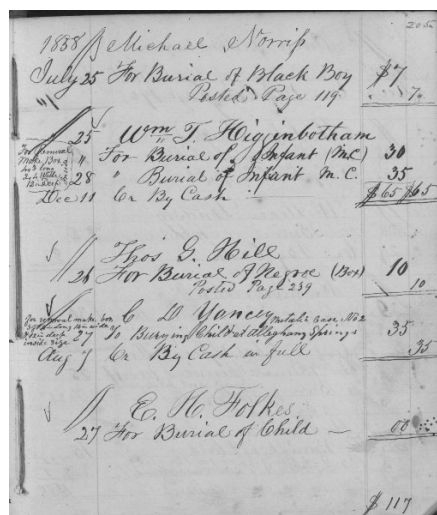 205
1858 Michael Norris
July 25 For Burial of Black Boy $7
Posted Page 119 7
25 Wm T. Higginbotham
" For Burial of Infant (M.C) 30
28 " Burial of Infant M. C. 35
Dec 11 Cr By Cash $65 $65
Thos G. Hill
26 For Burial of Negroe (Box) 10
Posted Page 239 10
C D Yancey Metalic Case No 2
27 To Burying Child at Alleghany Springs 35
Aug 7 Cr By Cash in full 35
E. H. Folkes
27 For Burial of Child —
$117